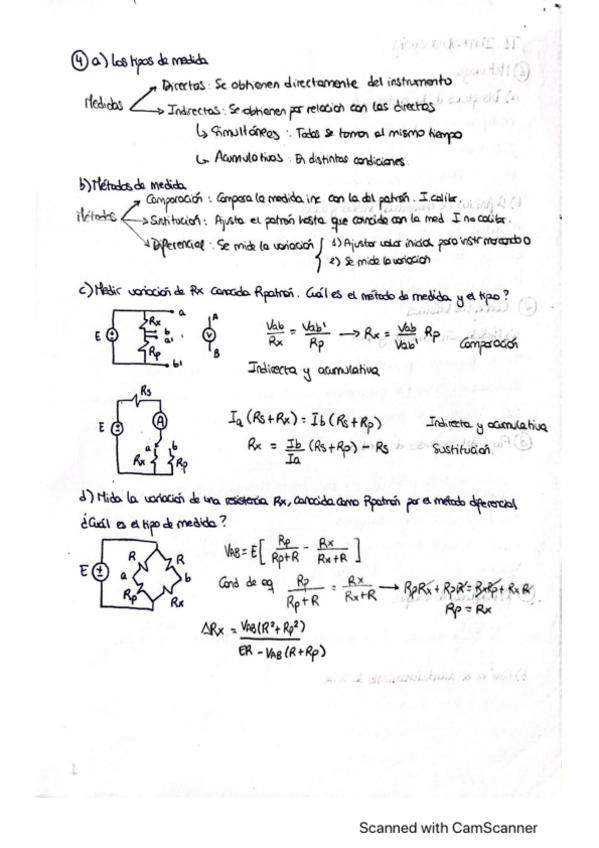 ④ a) Los tipos de medida
Medidas
Directas: Se obtienen directamente del instrumento
Indirectas: Se obtienen por relacion con las directas
↳ Simultáneas: Todas se toman al mismo tiempo
↳ Acumulativas: En distintas condiciones
b) Métodos de medida
Métodos
Comparación: Compara la medida inc con la del patrón. I. calibr.
Sustitución: Ajusta el patrón hasta que coincide con la med I no calibr.
Diferencial: Se mide la variación
1) Ajustar valor inicial para instr marcando 0
2) Se mide la variacion
c) Medir variación de Rx conocida Rpatrón. Cuál es el método de medida y el tipo?
E Rx Rp a b a' b' V A B
Vab/Rx = Vab'/Rp → Rx = Vab/Vab' Rp
Comparación
Indirecta y acumulativa
Rs E A a b Rx Rp
Ia (Rs+Rx) = Ib (Rs+Rp)
Indirecta y acumulativa
Rx = Ib/Ia (Rs+Rp) - Rs
Sustitución
d) Mida la variación de una resistencia Rx, conocida como Rpatrón por el método diferencial
¿Cuál es el tipo de medida?
E R R a b Rp Rx
VAB = E [ Rp/(Rp+R) - Rx/(Rx+R) ]
Cond de eq Rp/(Rp+R) = Rx/(Rx+R) → RpRx + RpR = RxRp + RxR
Rp = Rx
ΔRx = VAB(R²+Rp²)/(ER - VAB(R+Rp))
1
Scanned with CamScanner